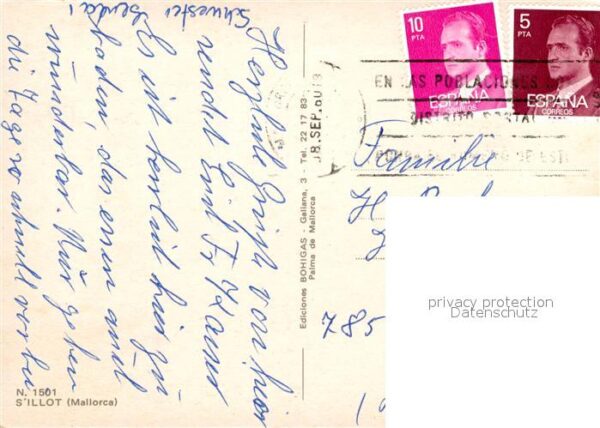 Herzliche Grüße von hier
sendet Emil Fr.
Schwester
Es ist herrlich hier zu
baden, das essen auch
wunderbar. Nur gehen
die Tage so schnell vorbei
10
PTA
ESPAÑA
CORREOS
5
PTA
ESPAÑA
CORREOS
EN LAS POBLACIONES
DISTRITO POSTAL
08.SEP.80
Familie
H
785
Ediciones BOHIGAS - Galiana, 3 - Tel. 22 17 83
Palma de Mallorca
N. 1501
S'ILLOT (Mallorca)
privacy protection
Datenschutz